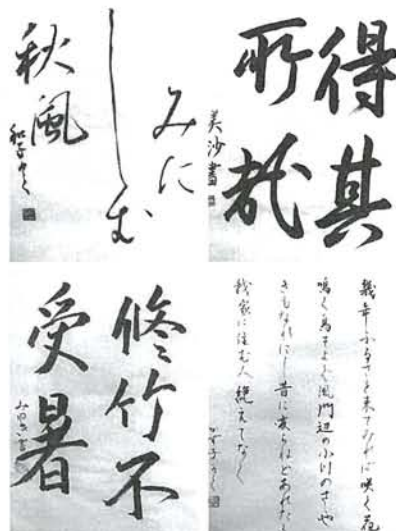 得其
所哉
美沙書
みに
しむ
秋風
修竹不
受暑
幾年ふるさと来てみれば咲く花
鳴く鳥そよぐ風門辺の小川のささや
きもなれにし昔に変らねどあれたる
我家に住む人絶えてなく